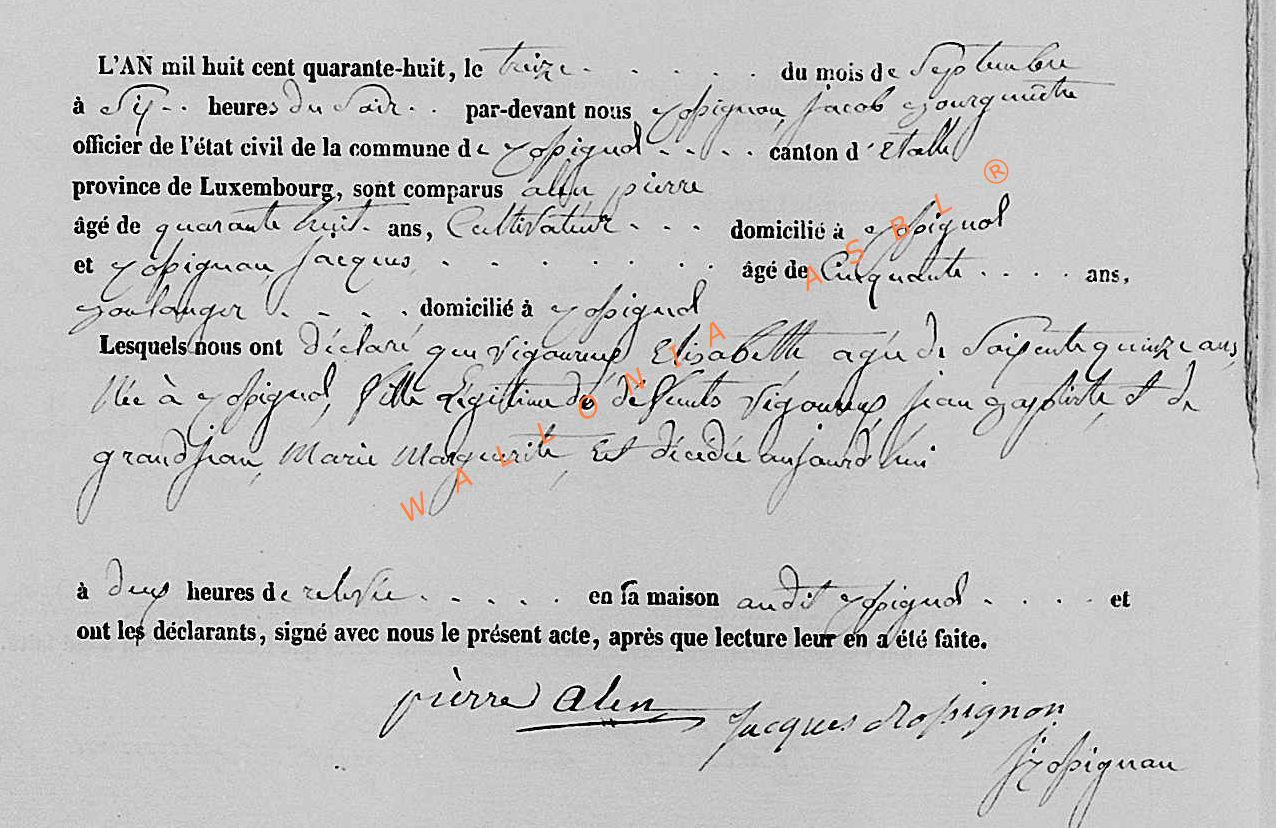 L'AN mil huit cent quarante-huit, le treize . . . . . du mois de Septembre
à Six . . heures du Soir . . par-devant nous Rossignon, Jacob Bourgmêtre
officier de l'état civil de la commune de Rossignol . . . . canton d'Etalle
province de Luxembourg, sont comparus alen pierre
âgé de quarante huit . ans, Cultivateur . . . domicilié à Rossignol
et Rossignon, Jacques, . . . . . . . âgé de Cinquante . . . . ans,
Boulanger . . . . domicilié à Rossignol
Lesquels nous ont déclaré que Vigoureux Elisabette agée de Soixente quinze ans,
Née à Rossignol, fille Légitime de défunts Vigoureux, jean Baptiste, et de
grandjean, Marie Marguerite, Est décédée aujourd'hui
à deux heures de relevée . . . . . en sa maison audit Rossignol . . . . et
ont les déclarants, signé avec nous le présent acte, après que lecture leur en a été faite.
pièrre Alen Jacques Rossignon
J Rossignon
WALLONIA ASBL ®